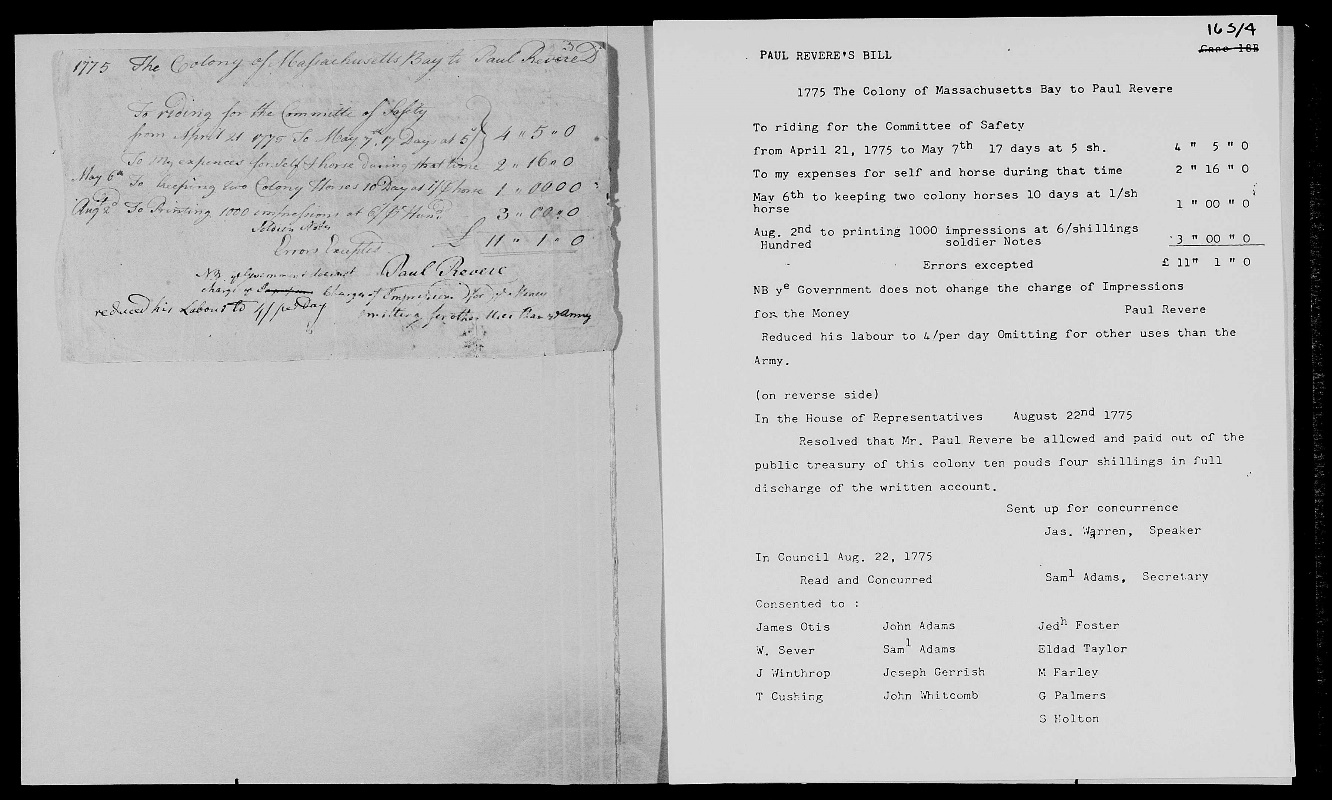 1775 The Colony of Massachusetts Bay to Paul Revere Dr
To riding for the Committe of Safety
from April 21 1775 To May 7th 17 Days at 5/ 4 " 5 " 0
To My expences for self & horse during that time 2 " 16 " 0
May 6th To keeping two Colony Horses 10 Day at 1/ pr horse 1 " 00 00
Augt 2d To Printing 1000 impressions at 6/ pr Hund 3 " 00 " 0
Soldiers Notes
Errors Excepted £ 11 " 1 " 0
Paul Revere
NB ye Government
charge of Impressions for ye Money
reduced his Labour to 4/ per Day
omitting for other Uses than ye Army
165/4
Case 18B
PAUL REVERE'S BILL
1775 The Colony of Massachusetts Bay to Paul Revere
To riding for the Committee of Safety
from April 21, 1775 to May 7th 17 days at 5 sh. 4 " 5 " 0
To my expenses for self and horse during that time 2 " 16 " 0
May 6th to keeping two colony horses 10 days at 1/sh
horse 1 " 00 " 0
Aug. 2nd to printing 1000 impressions at 6/shillings
Hundred soldier Notes 3 " 00 " 0
Errors excepted £ 11" 1 " 0
NB ye Government does not ohange the charge of Impressions
for the Money Paul Revere
Reduced his labour to 4/per day Omitting for other uses than the
Army.
(on reverse side)
In the House of Representatives August 22nd 1775
Resolved that Mr. Paul Revere be allowed and paid out of the
public treasury of this colony ten pouds four shillings in full
discharge of the written account.
Sent up for concurrence
Jas. Warren, Speaker
In Council Aug. 22, 1775
Read and Concurred Saml Adams, Secretary
Consented to :
James Otis John Adams Jedh Foster
W. Sever Saml Adams Eldad Taylor
J Winthrop Joseph Gerrish M Farley
T Cushing John Whitcomb G Palmers
S Holton